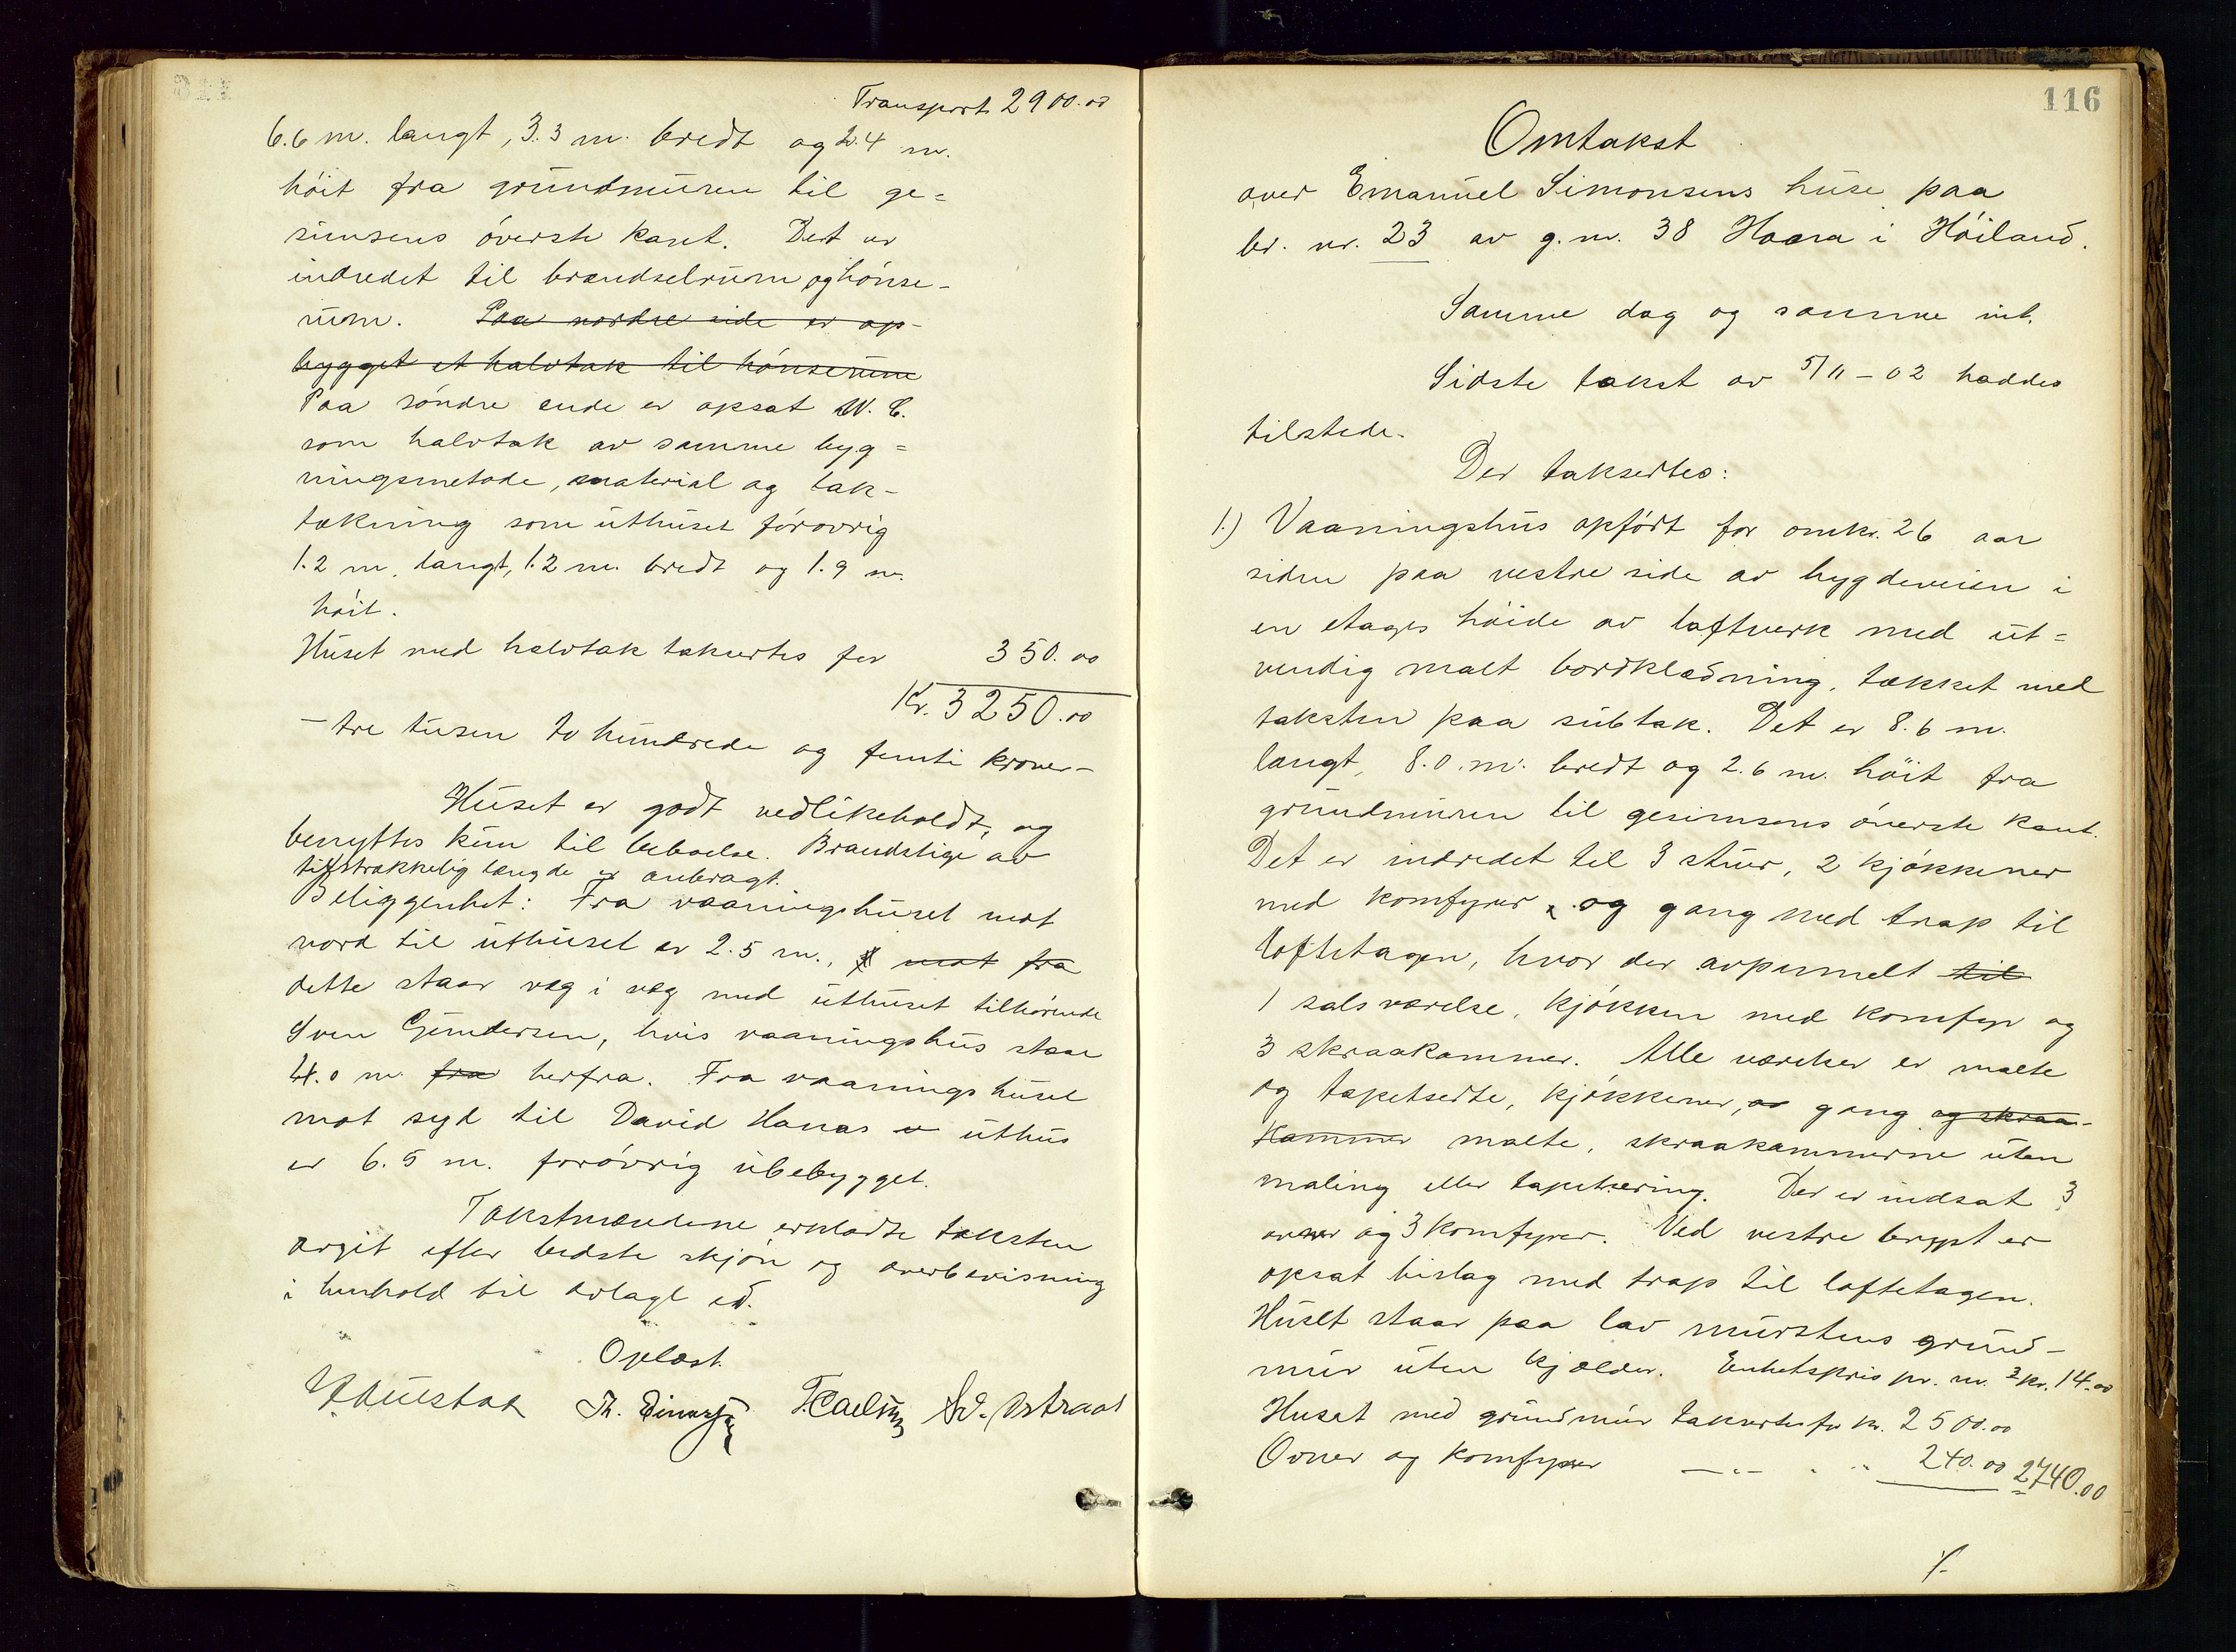 Transport 2900.00
6.6 m. langt, 3.3 m. bredt og 2.4 m.
höit fra grundmuren til ge=
simsens överste kant. Det er
indredet til brændselrum og hönse-
rum. Paa nordre side er op-
bygget et halvtak til hönserum
Paa söndre ende er opsat W.C.
som halvtak av samme byg=
ningsmetode, material og tak-
tækning som uthuset förovrig
1.2 m. langt, 1.2 m. bredt og 1.9 m.
höit.
Huset med halvtak taksertes for 350.00
Kr. 3250.00
- tre tusen to hundrede og femti kroner-
Huset er godt vedlikeholdt, og
benyttes kun til beboelse. Brandstige av
tilstrækkelig længde er anbragt.
Beliggenhet: Fra vaaningshuset mot
nord til uthuset er 2.5 m., mot fra
dette staar væg i væg med uthuset tilhörende
Sven Gundersen, hvis vaaningshus staar
4.0 m. fra herfra. Fra vaaningshuset
mot syd til David Hanas uthus
er 6.5 m. forövrig ubebygget.
Takstmændene erklærte taksten
avgit efter bedste skjön og overbevisning
i henhold til avlagt ed.
Oplæst.
Th. Einarsen Sv. Østraat
116
Omtakst
over Emanuel Simonsens huse paa
br. nr. 23 av g.nr. 38 Haara i Höiland.
Samme dag og samme ret.
Sidste takst av 5/11-02 haddes
tilstede.
Der taksertes:
1.) Vaaningshus opfört for omkr. 26 aar
siden paa vestre side av bygdeveien i
en etages höide av laftverk med ut=
vendig malt bordklædning, tækket med
taksten paa subtak. Det er 8.6 m.
langt, 8.0 m. bredt og 2.6 m. höit fra
grundmuren til gesimsens överste kant.
Det er indredet til 3 stuer, 2 kjökkener
med komfyrer, og gang med trap til
loftetagen, hvor der avpanelt til
1 salsværelse, kjökken med komfyr og
3 skraakammer. Alle værelser er malte
og tapetserte, kjökkener, gang og skraa-
kammer malte, skraakammerne uten
maling eller tapetsering. Der er indsat 3
ovner og 3 komfyrer. Ved vestre bryst er
opsat bislag med trap til loftetagen.
Huset staar paa lav murstens grund-
mur uten kjælder. Enhetspris pr. m.² kr. 14.00
Huset med grundmur takseртes for kr. 2500.00
Ovner og komfyrer — " — " 240.00 2740.00